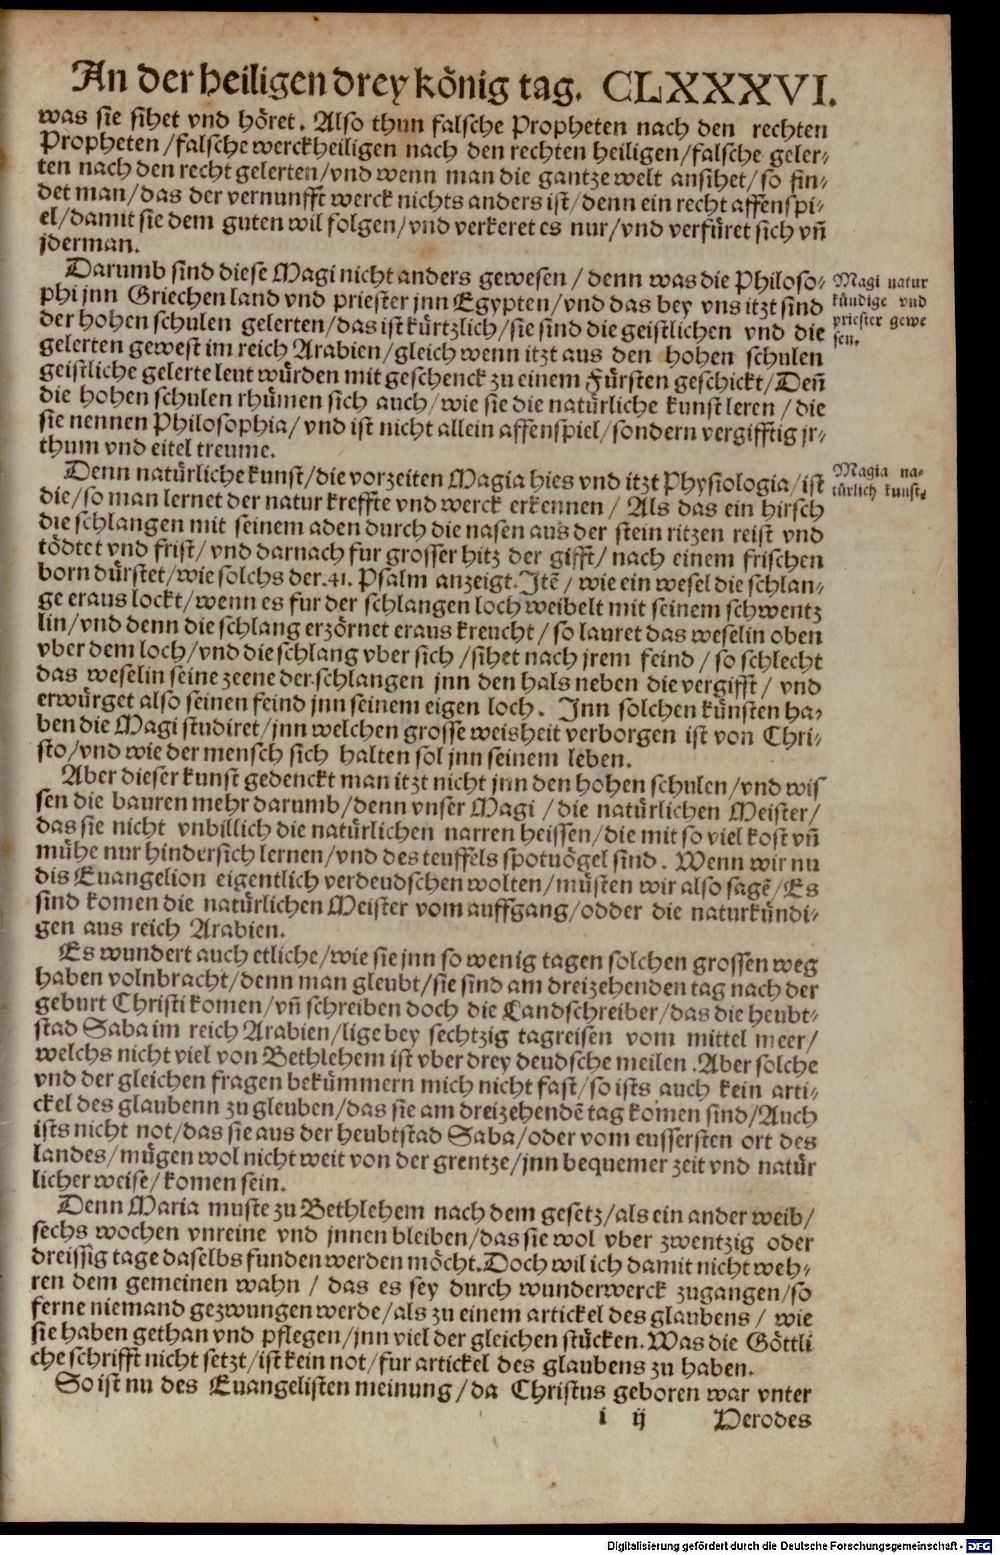 An der heiligen drey kônig tag. CLXXXVI.
was sie sihet vnd hôret. Also thun falsche Propheten nach den rechten
Propheten / falsche werckheiligen nach den rechten heiligen / falsche geler-
ten nach den recht gelerten / vnd wenn man die gantze welt ansihet / so fin-
det man / das der vernunfft werck nichts anders ist / denn ein recht affenspi-
el / damit sie dem guten wil folgen / vnd verkeret es nur / vnd verfûret sich vñ
jderman.
Darumb sind diese Magi nicht anders gewesen / denn was die Philoso-
phi jnn Griechen land vnd priester jnn Egypten / vnd das bey vns itzt sind
der hohen schulen gelerten / das ist kûrtzlich / sie sind die geistlichen vnd die
gelerten gewest im reich Arabien / gleich wenn itzt aus den hohen schulen
geistliche gelerte leut wûrden mit geschenck zu einem Fûrsten geschickt / Deñ
die hohen schulen rhûmen sich auch / wie sie die natûrliche kunst leren / die
sie nennen Philosophia / vnd ist nicht allein affenspiel / sondern vergifftig jr-
thum vnd eitel treume.
Magi natur
kûndige vnd
priester gewe
sen.
Denn natûrliche kunst / die vorzeiten Magia hies vnd itzt Physiologia / ist
die / so man lernet der natur kreffte vnd werck erkennen / Als das ein hirsch
die schlangen mit seinem aden durch die nasen aus der stein ritzen reist vnd
tôdtet vnd frist / vnd darnach fur grosser hitz der gifft / nach einem frischen
born dûrstet / wie solchs der .41. Psalm anzeigt. Itẽ / wie ein wesel die schlan-
ge eraus lockt / wenn es fur der schlangen loch weibelt mit seinem schwentz
lin / vnd denn die schlang erzôrnet eraus kreucht / so lauret das weselin oben
vber dem loch / vnd die schlang vber sich / sihet nach jrem feind / so schlecht
das weselin seine zeene der schlangen jnn den hals neben die vergifft / vnd
erwûrget also seinen feind jnn seinem eigen loch. Inn solchen kûnsten ha-
ben die Magi studiret / jnn welchen grosse weisheit verborgen ist von Chri-
sto / vnd wie der mensch sich halten sol jnn seinem leben.
Magia na-
tûrlich kunst.
Aber dieser kunst gedenckt man itzt nicht jnn den hohen schulen / vnd wis
sen die bauren mehr darumb / denn vnser Magi / die natûrlichen Meister /
das sie nicht vnbillich die natûrlichen narren heissen / die mit so viel kost vñ
mûhe nur hindersich lernen / vnd des teuffels spotuôgel sind. Wenn wir nu
dis Euangelion eigentlich verdeudschen wolten / mûsten wir also sagẽ / Es
sind komen die natûrlichen Meister vom auffgang / odder die naturkûndi-
gen aus reich Arabien.
Es wundert auch etliche / wie sie jnn so wenig tagen solchen grossen weg
haben volnbracht / denn man gleubt / sie sind am dreizehenden tag nach der
geburt Christi komen / vñ schreiben doch die Landschreiber / das die heubt-
stad Saba im reich Arabien / lige bey sechtzig tagreisen vom mittel meer /
welchs nicht viel von Bethlehem ist vber drey deudsche meilen. Aber solche
vnd der gleichen fragen bekûmmern mich nicht fast / so ists auch kein arti-
ckel des glaubenn zu gleuben / das sie am dreizehendẽ tag komen sind / Auch
ists nicht not / das sie aus der heubtstad Saba / oder vom eussersten ort des
landes / mûgen wol nicht weit von der grentze / jnn bequemer zeit vnd natûr
licher weise / komen sein.
Denn Maria muste zu Bethlehem nach dem gesetz / als ein ander weib /
sechs wochen vnreine vnd jnnen bleiben / das sie wol vber zwentzig oder
dreissig tage daselbs funden werden môcht. Doch wil ich damit nicht weh-
ren dem gemeinen wahn / das es sey durch wunderwerck zugangen / so
ferne niemand gezwungen werde / als zu einem artickel des glaubens / wie
sie haben gethan vnd pflegen / jnn viel der gleichen stûcken. Was die Gôttli
che schrifft nicht setzt / ist kein not / fur artickel des glaubens zu haben.
So ist nu des Euangelisten meinung / da Christus geboren war vnter
i ij Herodes
Digitalisierung gefördert durch die Deutsche Forschungsgemeinschaft - DFG